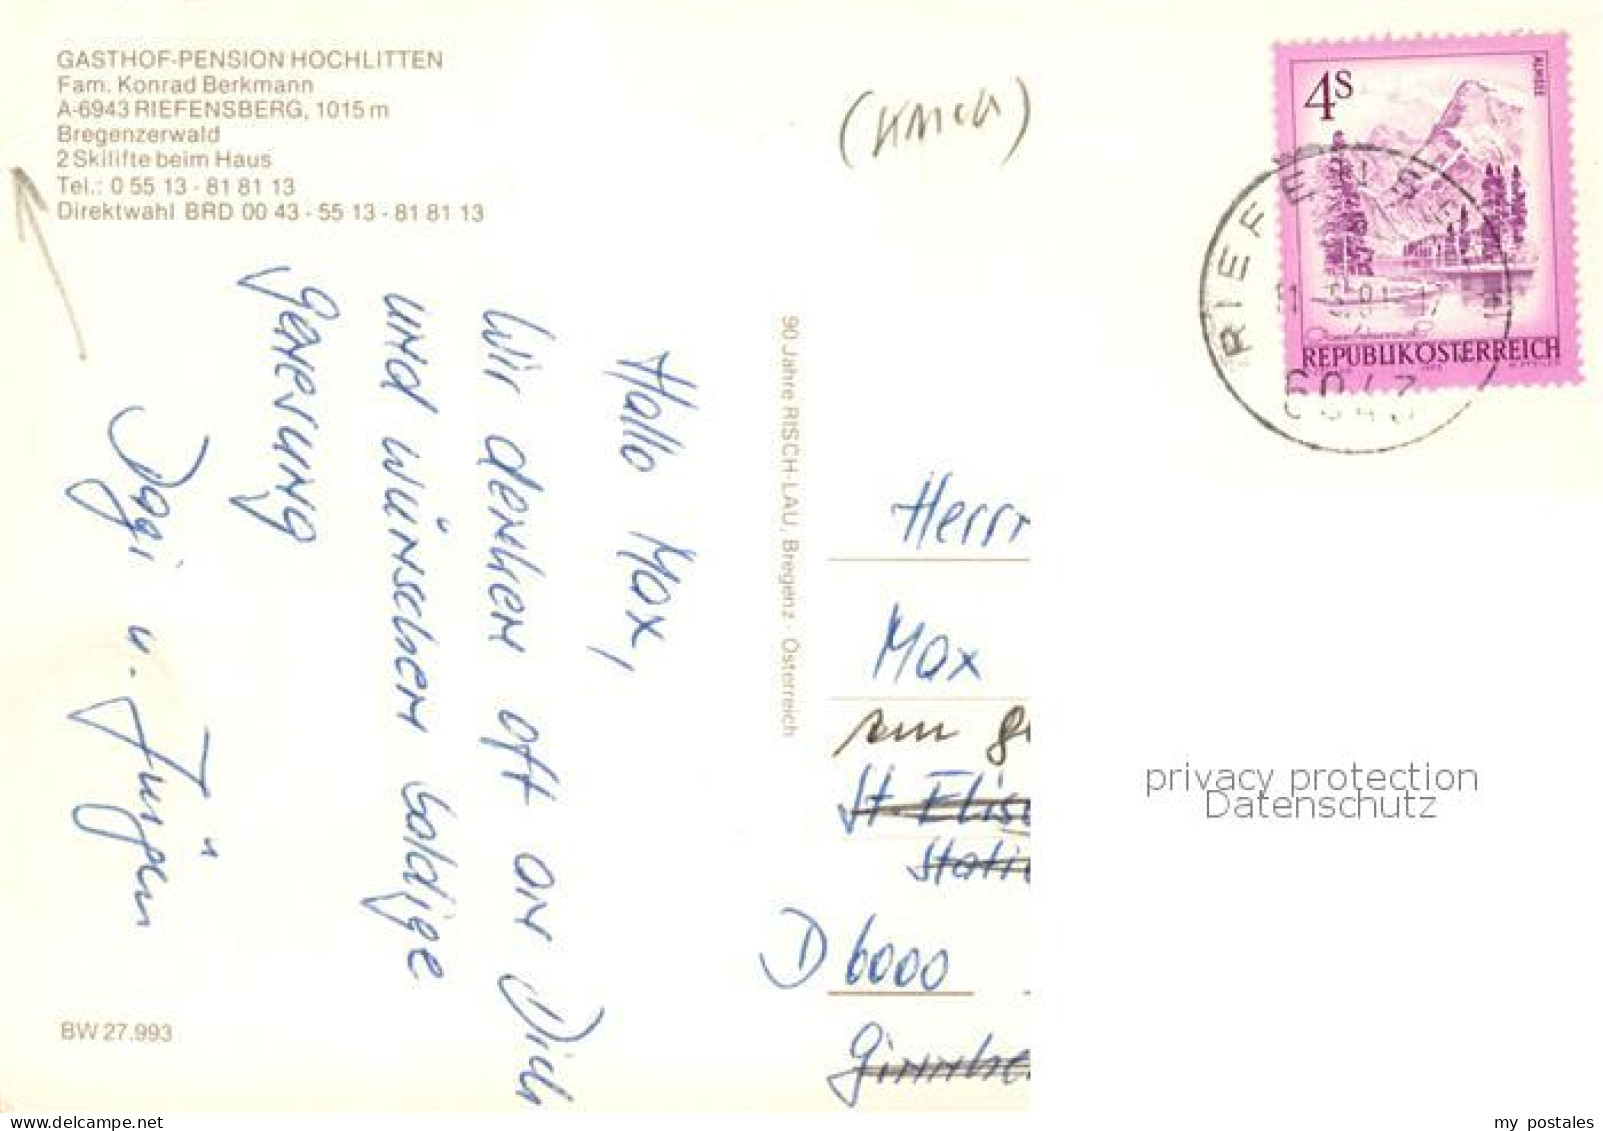 GASTHOF-PENSION HOCHLITTEN
Fam. Konrad Berkmann
A-6943 RIEFENSBERG, 1015 m
Bregenzerwald
2 Skilifte beim Haus
Tel.: 0 55 13 - 81 81 13
Direktwahl BRD 00 43 - 55 13 - 81 81 13
Hallo Max,
Wir denken oft an Dich
und wünschen baldige
genesung
Dagi u. Jürgen
BW 27.993
90 Jahre RISCH-LAU, Bregenz · Österreich
4S
ALMSEE
REPUBLIK ÖSTERREICH
RIEFENSBERG
6943
Herrn
Max
St. Elis
Stati
D 6000
Ginnhe
privacy protection
Datenschutz
my postales